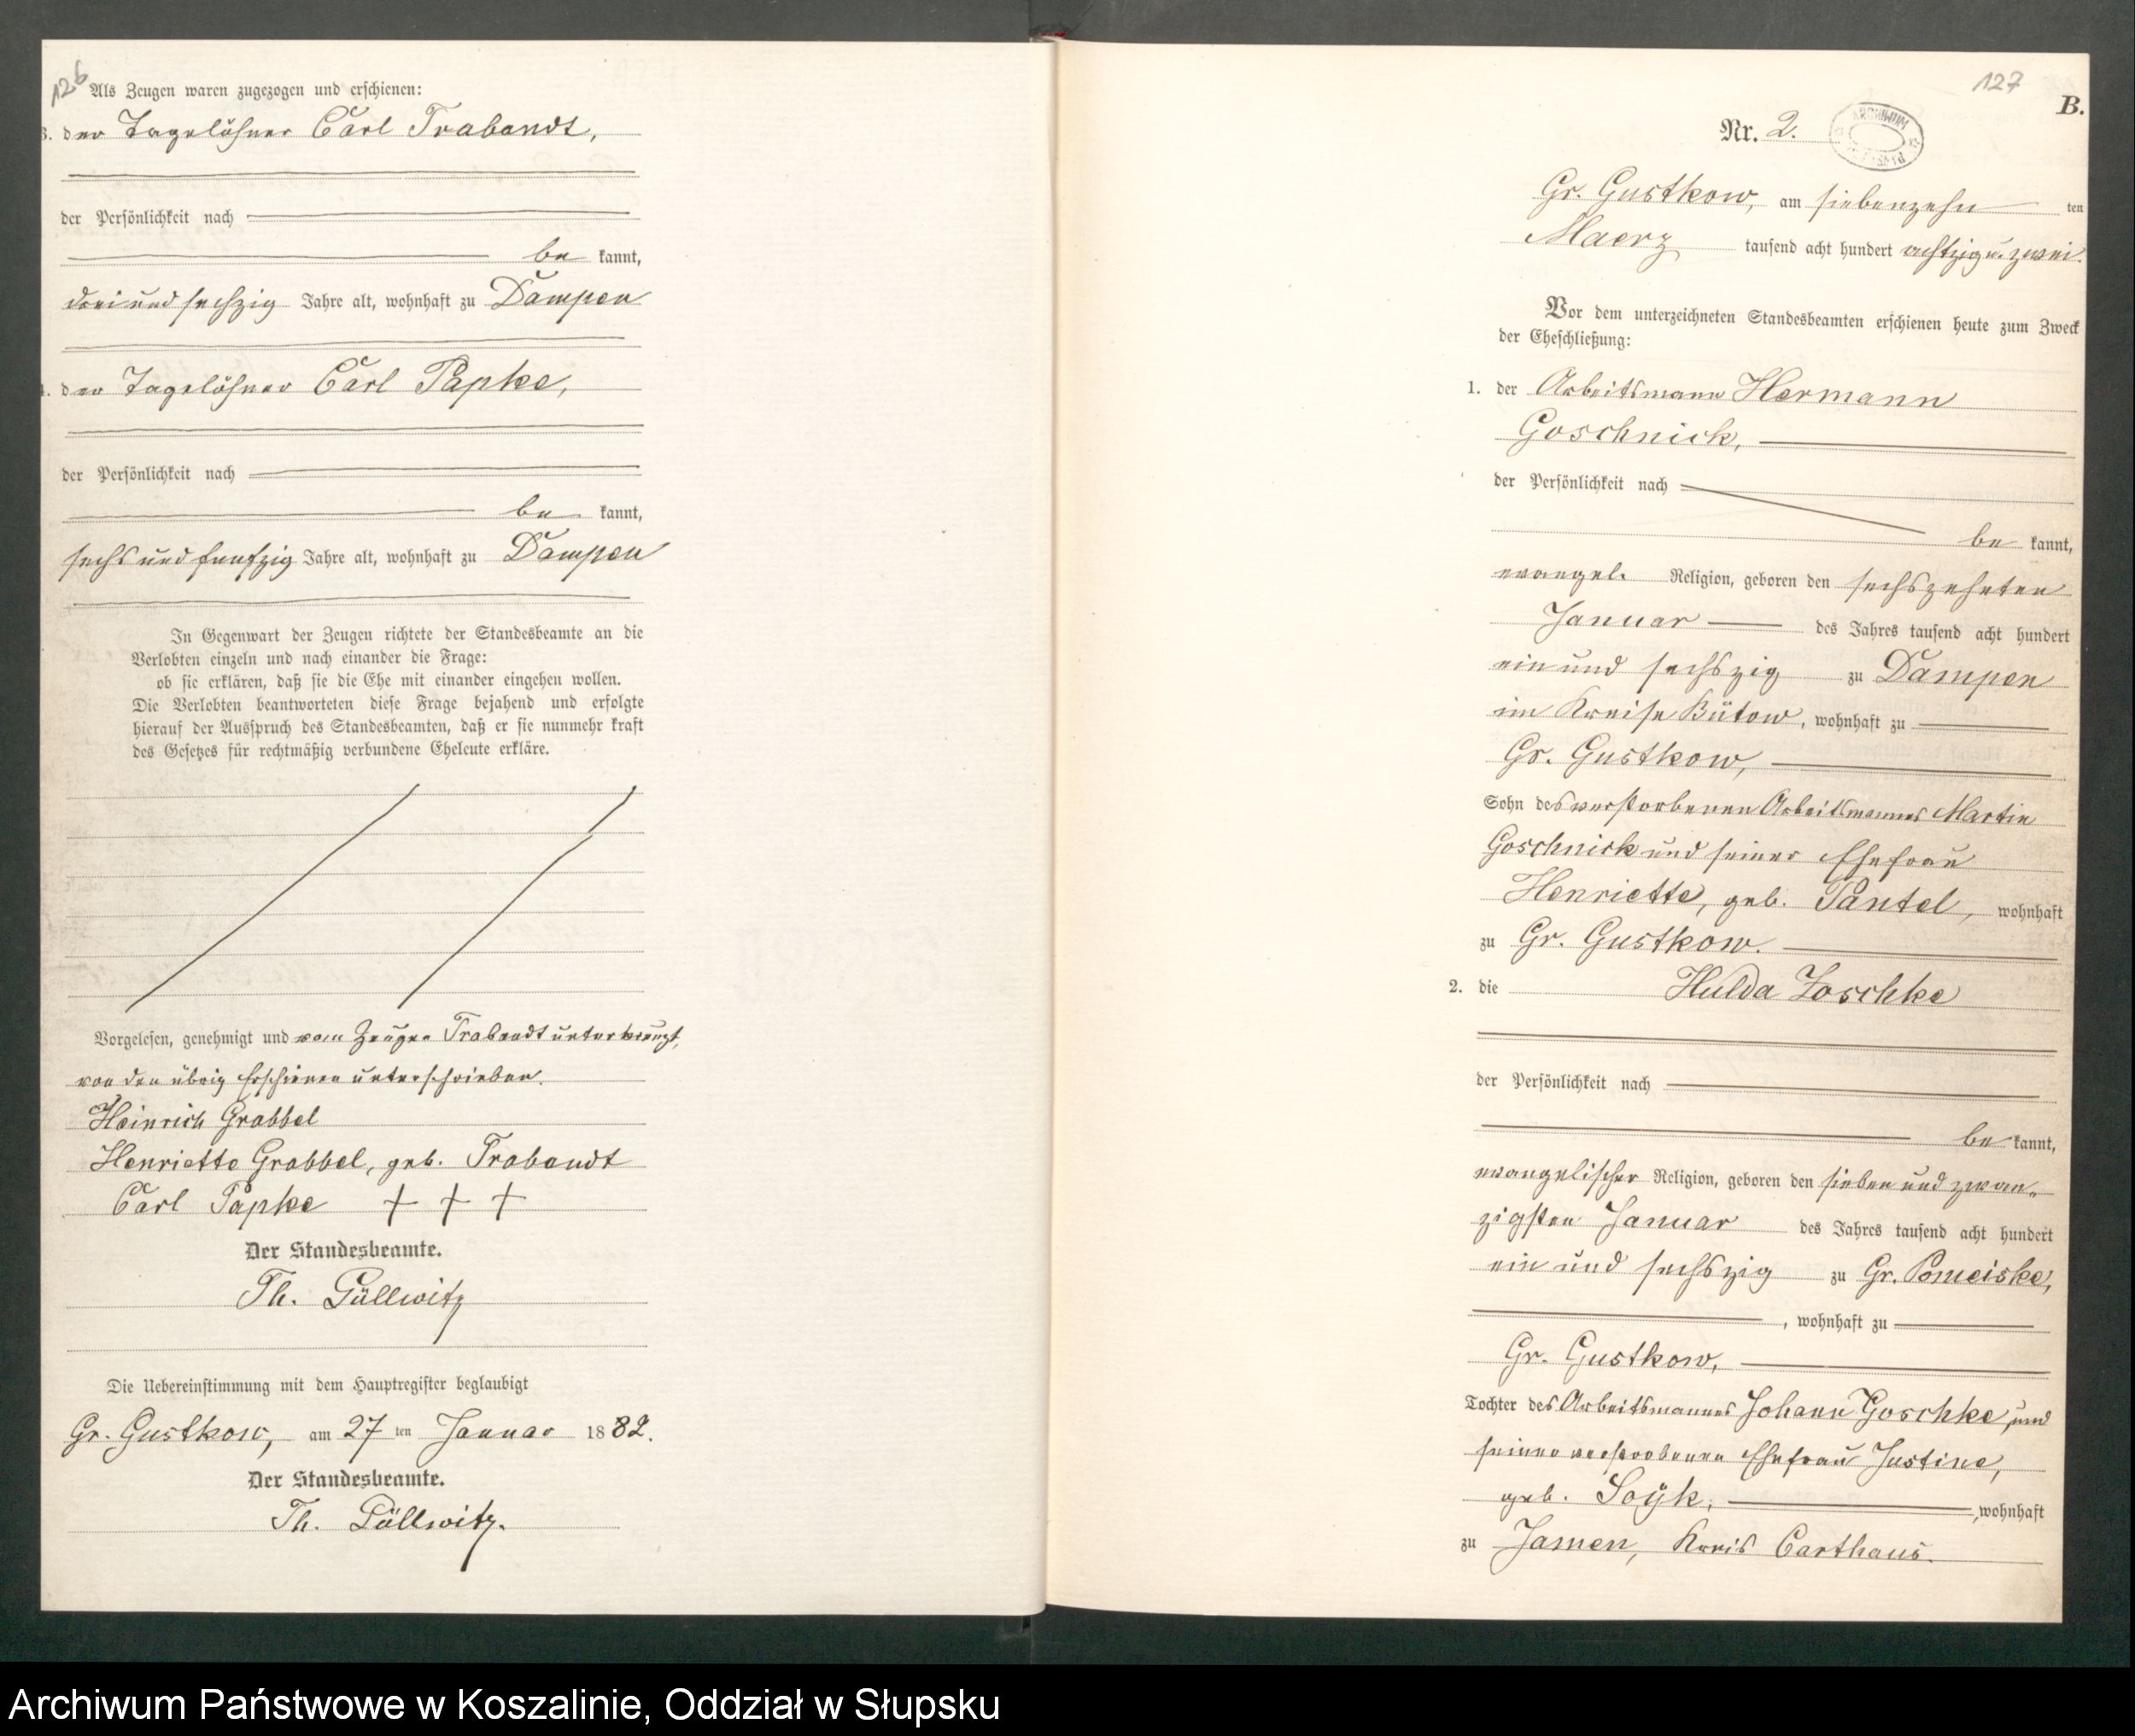 126
Als Zeugen waren zugezogen und erschienen:
3. der Tagelöhner Carl Trabandt,
der Persönlichkeit nach
be kannt,
drei und sechzig Jahre alt, wohnhaft zu Dampen
4. der Tagelöhner Carl Papke,
der Persönlichkeit nach
be kannt,
sechs und funfzig Jahre alt, wohnhaft zu Dampen
In Gegenwart der Zeugen richtete der Standesbeamte an die
Verlobten einzeln und nach einander die Frage:
ob sie erklären, daß sie die Ehe mit einander eingehen wollen.
Die Verlobten beantworteten diese Frage bejahend und erfolgte
hierauf der Ausspruch des Standesbeamten, daß er sie nunmehr kraft
des Gesetzes für rechtmäßig verbundene Eheleute erkläre.
Vorgelesen, genehmigt und vom Zeugen Trabandt unterkreuzt,
von den übrig Erschienen unterschrieben.
Heinrich Grabbel
Henriette Grabbel, geb. Trabandt
Carl Papke + + +
Der Standesbeamte.
Th. Püllwitz
Die Uebereinstimmung mit dem Hauptregister beglaubigt
Gr. Gustkow, am 27 ten Januar 1882.
Der Standesbeamte.
Th. Püllwitz.
127
B.
Nr. 2.
ARCHIWUM
Gr. Gustkow, am siebenzehn ten
Maerz tausend acht hundert achtzig u. zwei.
Vor dem unterzeichneten Standesbeamten erschienen heute zum Zweck
der Eheschließung:
1. der Arbeitsmann Hermann
Goschnick,
der Persönlichkeit nach
be kannt,
evangel. Religion, geboren den sechszehnten
Januar des Jahres tausend acht hundert
ein und sechszig zu Dampen
im Kreise Bütow, wohnhaft zu
Gr. Gustkow,
Sohn des verstorbenen Arbeitsmannes Martin
Goschnick und seiner Ehefrau
Henriette, geb. Pantel, wohnhaft
zu Gr. Gustkow.
2. die Hulda Joschke
der Persönlichkeit nach
be kannt,
evangelischer Religion, geboren den sieben und zwan-
zigsten Januar des Jahres tausend acht hundert
ein und sechszig zu Gr. Pomeiske,
, wohnhaft zu
Gr. Gustkow,
Tochter des Arbeitsmannes Johann Goschke, und
seiner verstorbenen Ehefrau Justine,
geb. Soÿk, , wohnhaft
zu Jamen, Kreis Carthaus.
Archiwum Państwowe w Koszalinie, Oddział w Słupsku